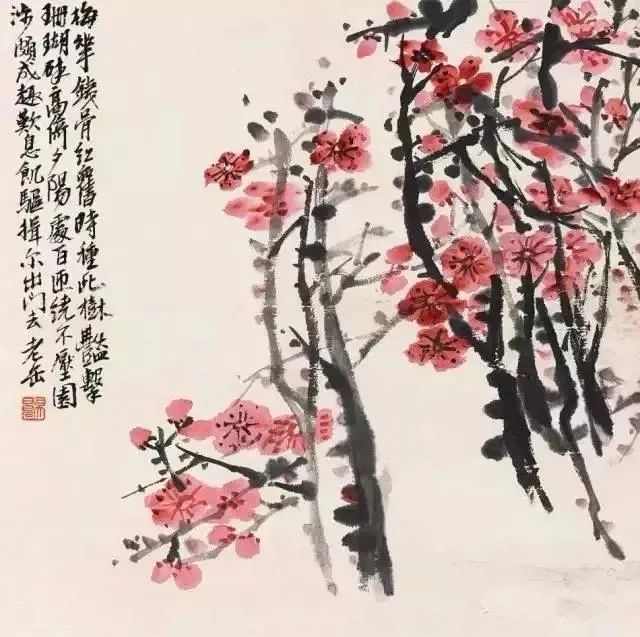 梅華鐵骨紅舊時種此樹豔擊
珊瑚碎高倚夕陽處百匝繞不壓園
涉頗成趣歎息飢驅揮尔出門去 老缶